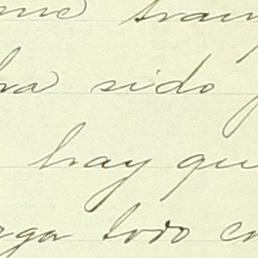 me tran
ha sido
hay que
ga todo co